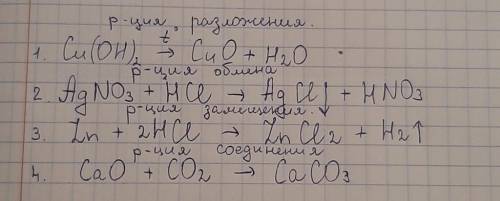 р-ция разложения.
1. Cu(OH)₂ →ᵗ CuO + H₂O
р-ция обмена
2. AgNO₃ + HCl → AgCl↓ + HNO₃
р-ция замещения.
3. Zn + 2HCl → ZnCl₂ + H₂↑
р-ция соединения
4. CaO + CO₂ → CaCO₃